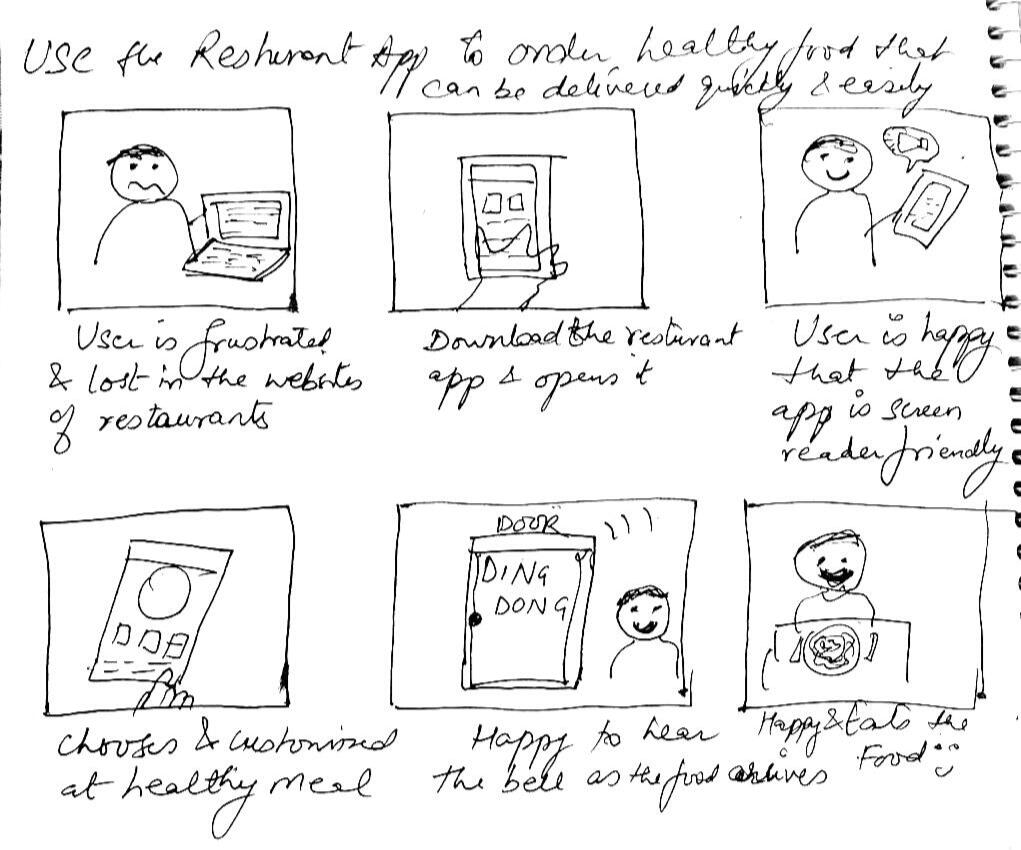 USE the Resturant App to order healthy food that
can be delivered quickly & easily
User is frustrated
& lost in the websites
of restaurants
Download the resturant
app & opens it
User is happy
that the
app is screen
reader friendly
DOOR
DING
DONG
Chooses & customised
at healthy meal
Happy to hear
the bell as the food arrives
Happy & Eats the
Food